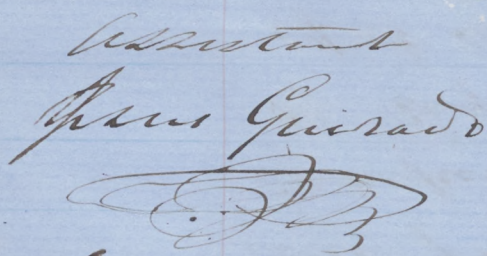 Assistant
Guirado